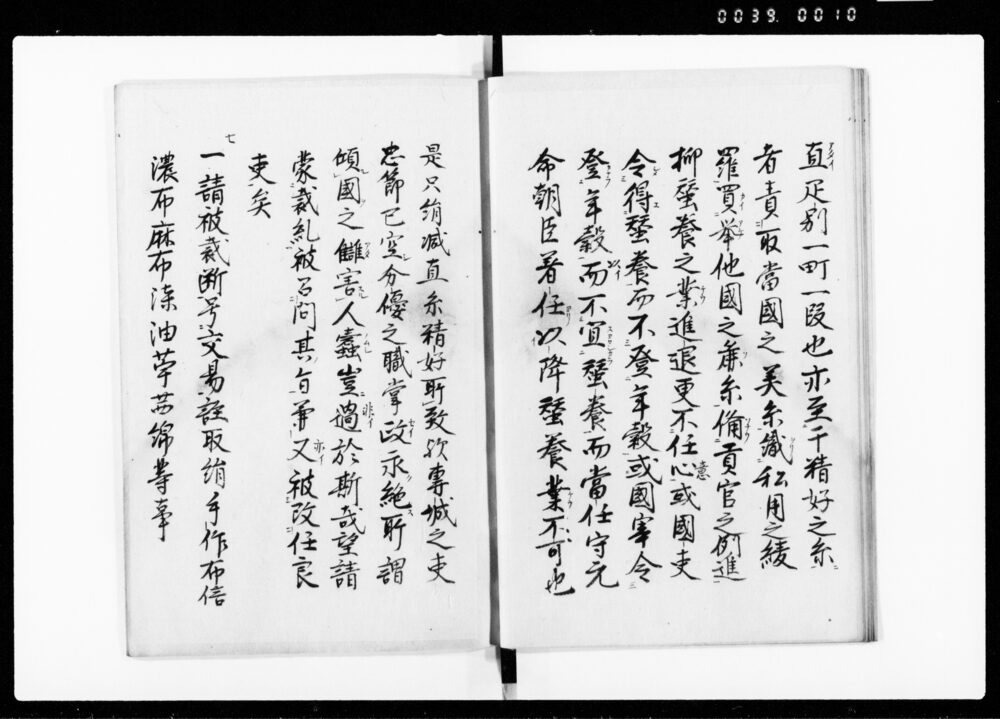 0039. 0010
直疋別一町一段也亦至于精好之糸
者責取當國之美糸織私用之綾
羅買挙他國之麁糸備貢官之例進
抑蚕養之業進退更不任心或國吏
令得蚕養而不登年穀或國宰令
登年穀而不宜蚕養而當任守元
命朝臣著任以降蚕養業不可也
是只絹減直糸精好所致欤専城之吏
忠節已空分優之職掌政永絶所謂
傾國之讎害人蠹豈過於斯哉望請
蒙裁糺被召問其旨兼又被改任良
吏矣
七
一請被裁断号交易誑取絹手作布信
濃布麻布漆油苧茜綿等事